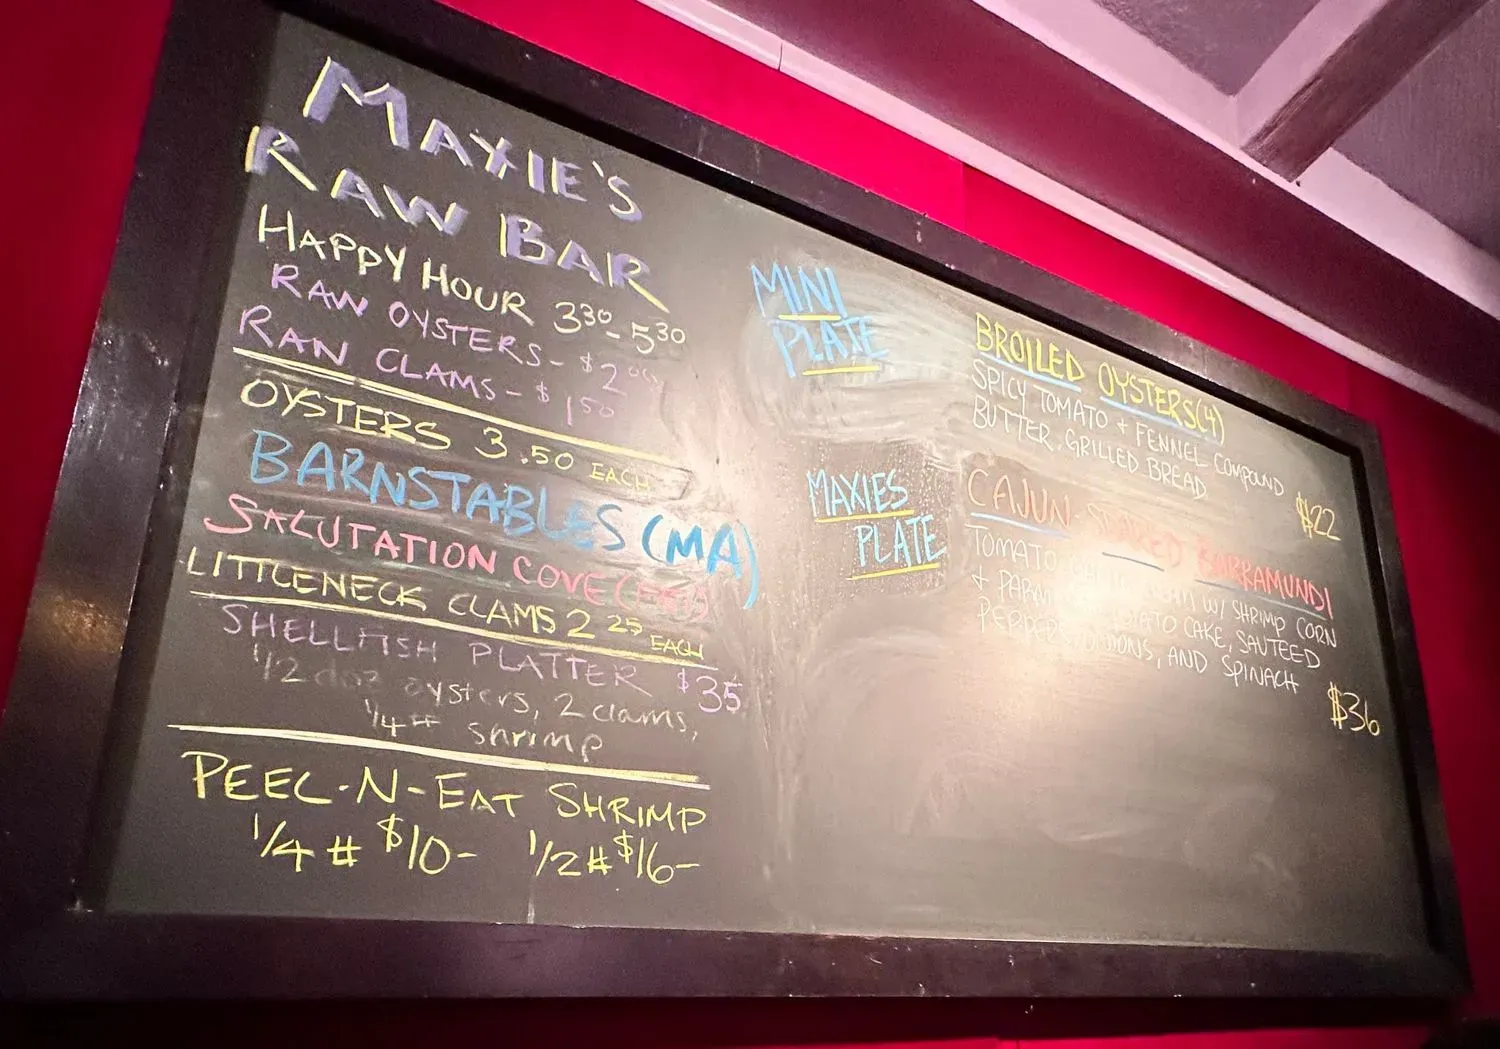 MAXIE'S
RAW BAR
HAPPY HOUR 330-530
RAW OYSTERS - $200
RAW CLAMS - $150
OYSTERS 3.50 EACH
BARNSTABLES (MA)
SALUTATION COVE (PEI)
LITTLENECK CLAMS 225 EACH
SHELLFISH PLATTER $35
1/2 doz oysters, 2 clams,
1/4 # shrimp
PEEL-N-EAT SHRIMP
1/4 # $10- 1/2 # $16-
MINI
PLATE
BROILED OYSTERS(4)
SPICY TOMATO + FENNEL COMPOUND
BUTTER, GRILLED BREAD
$22
MAXIES
PLATE
CAJUN SEARED BARRAMUNDI
TOMATO W/ SHRIMP CORN
& PARM POTATO CAKE, SAUTEED
PEPPERS, ONIONS, AND SPINACH
$36